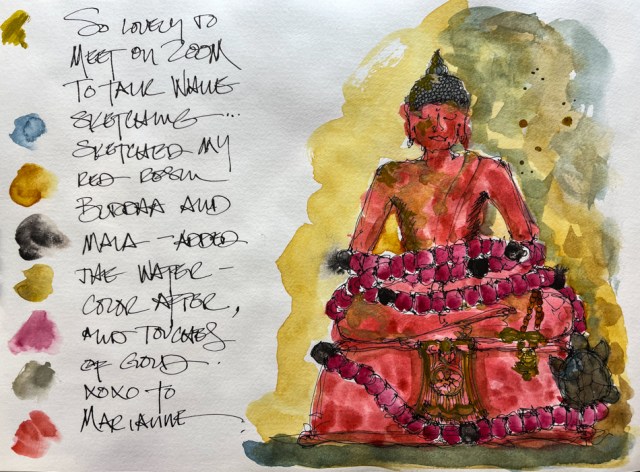 SO LOVELY TO
MEET ON ZOOM
TO TALK WHILE
SKETCHING...
SKETCHED MY
RED RESIN
BUDDHA AND
MALA - ADDED
THE WATER -
COLOR AFTER,
AND TOUCHES
OF GOLD.
XOXO TO
MARIANNE.